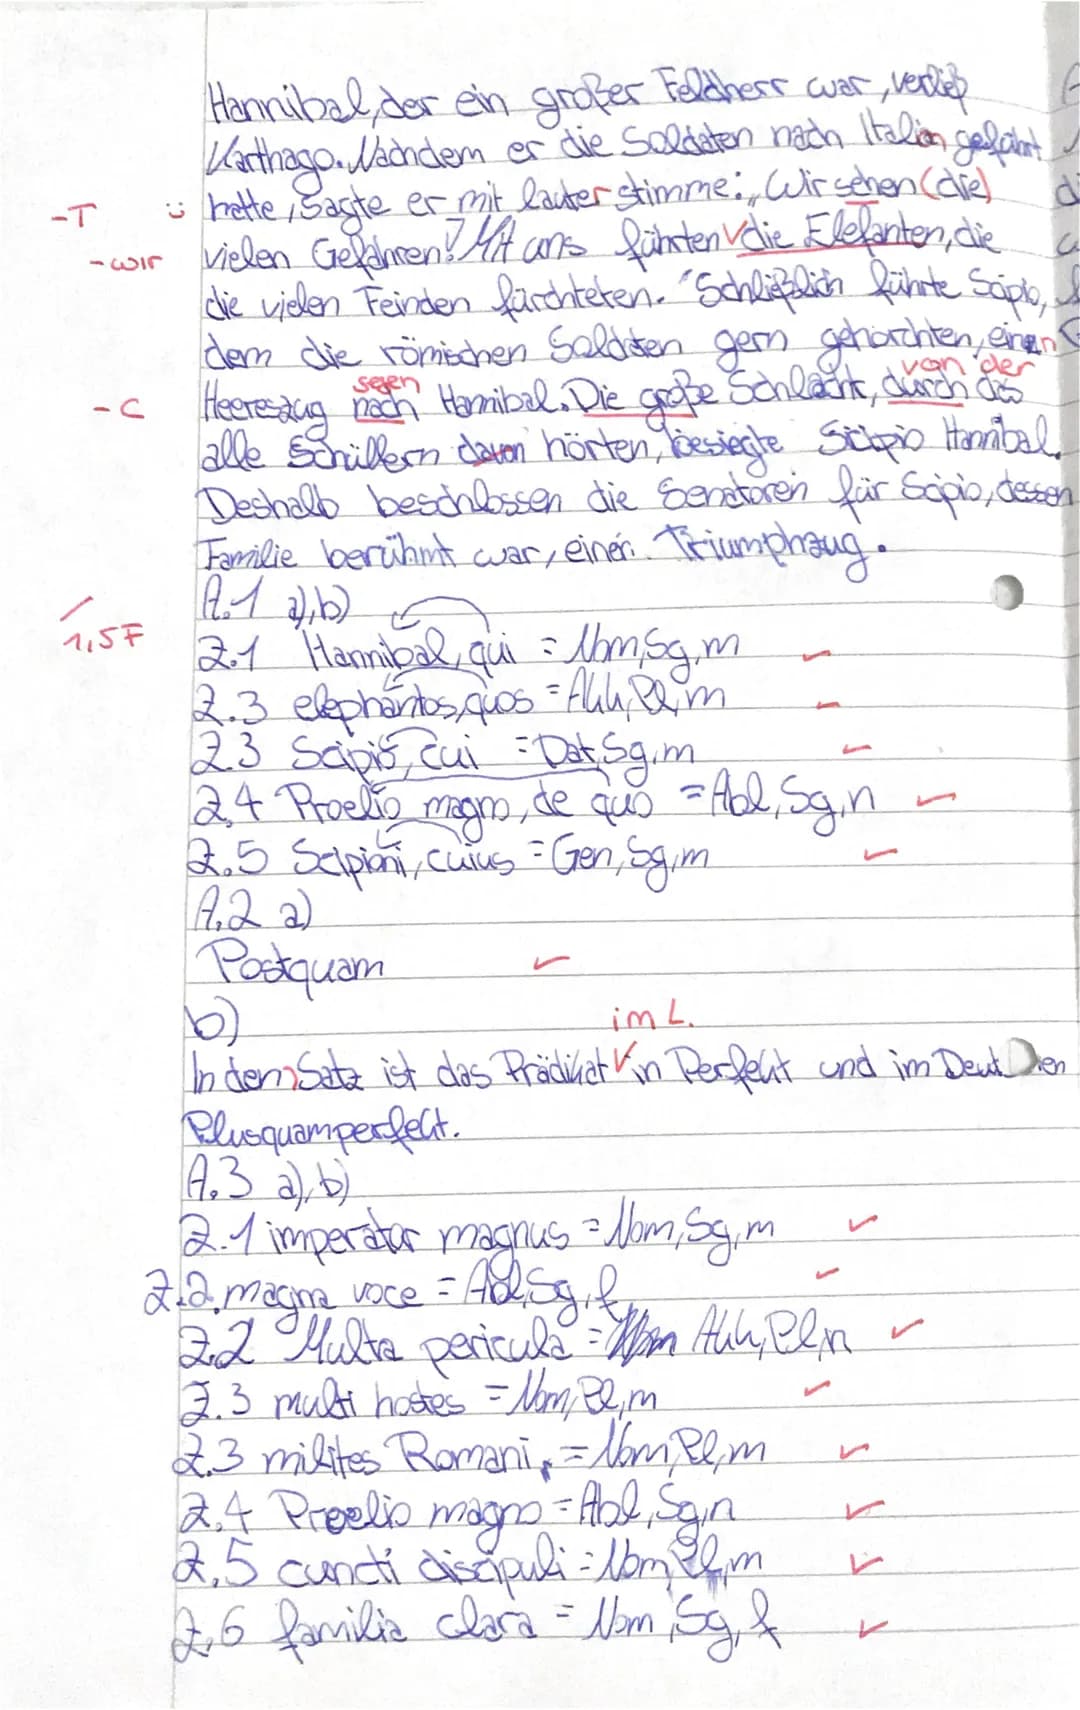 Hannibal, der ein großer Feldherr war, verließ
Karthago. Nachdem er die Soldaten nach Italien geführt
-T hatte, sagte er mit lauter stimme: „Wir sehen (die)
-wir vielen Gefahren! Mit uns führten √ die Elefanten, die
die vielen Feinden fürchteten. "Schließlich führte Scipio,
dem die römischen Soldaten gern gehorchten, einen
gegen von der
-C Heereszug nach Hannibal. Die große Schlacht, durch das
alle Schüllern davon hörten, besiegte Scipio Hannibal.
Deshalb beschlossen die Senatoren für Scipio, dessen
Familie berühmt war, einen Triumphzug.
A.1 a), b)
1,5F
Z.1 Hannibal, qui = Nom, Sg, m
Z.3 elephantos, quos = Akk, Pl, m
Z.3 Scipio, cui = Dat, Sg, m
Z.4 Proelio magno, de quo = Abl, Sg, n
Z.5 Scipioni, cuius = Gen, Sg, m
A.2 a)
Postquam
b) im L.
In dem Satz ist das Prädikat √ in Perfekt und im Deut en
Plusquamperfekt.
A.3 a), b)
Z.1 imperator magnus = Nom, Sg, m
Z.2. magna voce = Abl, Sg, f
Z.2 Multa pericula = Akk, Pl, n
Z.3 multi hostes = Nom, Pl, m
Z.3 milites Romani = Nom, Pl, m
Z.4 Proelio magno = Abl, Sg, n
Z.5 cuncti discipuli = Nom, Pl, m
Z.6 familia clara = Nom, Sg, f